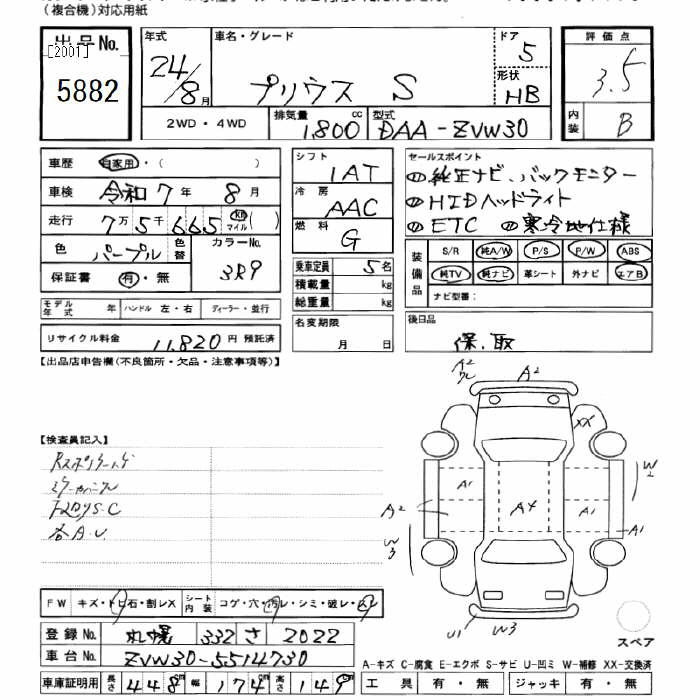 (複合機)対応用紙
出品No. [2001] 5882
年式 24/8月
車名・グレード プリウス S
ドア 5
形状 HB
2WD・4WD
排気量 1,800 cc
型式 DAA-ZVW30
評価点 3.5
内装 B
車歴 自家用・( )
車検 令和7年 8月
走行 7万5千665 km マイル ( )
色 パープル 色替 カラーNo. 3R9
保証書 有・無
モデル年式 年 ハンドル 左・右 ディーラー・並行
リサイクル料金 11,820円 預託済
シフト 1AT
冷房 AAC
燃料 G
乗車定員 5名
積載量 kg
総重量 kg
名変期限 月 日
セールスポイント
純正ナビ、バックモニター
HIDヘッドライト
ETC 寒冷地仕様
装備品 S/R 純A/W P/S P/W ABS
純TV 純ナビ 革シート 外ナビ エアB
ナビ型番:
後日品
保、取
【出品店申告欄(不良箇所・欠品・注意事項等)】
【検査員記入】
A2
A2
XX
W2
A1
A4
A1
A1
A2
W3
U1 W3
スペア
FW キズ・トビ石・割レX シート内装 コゲ・穴・汚レ・シミ・破レ・ムレ
登録No. 札幌 332 さ 2022
車台No. ZVW30-5514730
車庫証明用 長さ 448 幅 174 高さ 149
A-キズ C-腐食 E-エクボ S-サビ U-凹ミ W-補修 XX-交換済
工具 有・無 ジャッキ 有・無